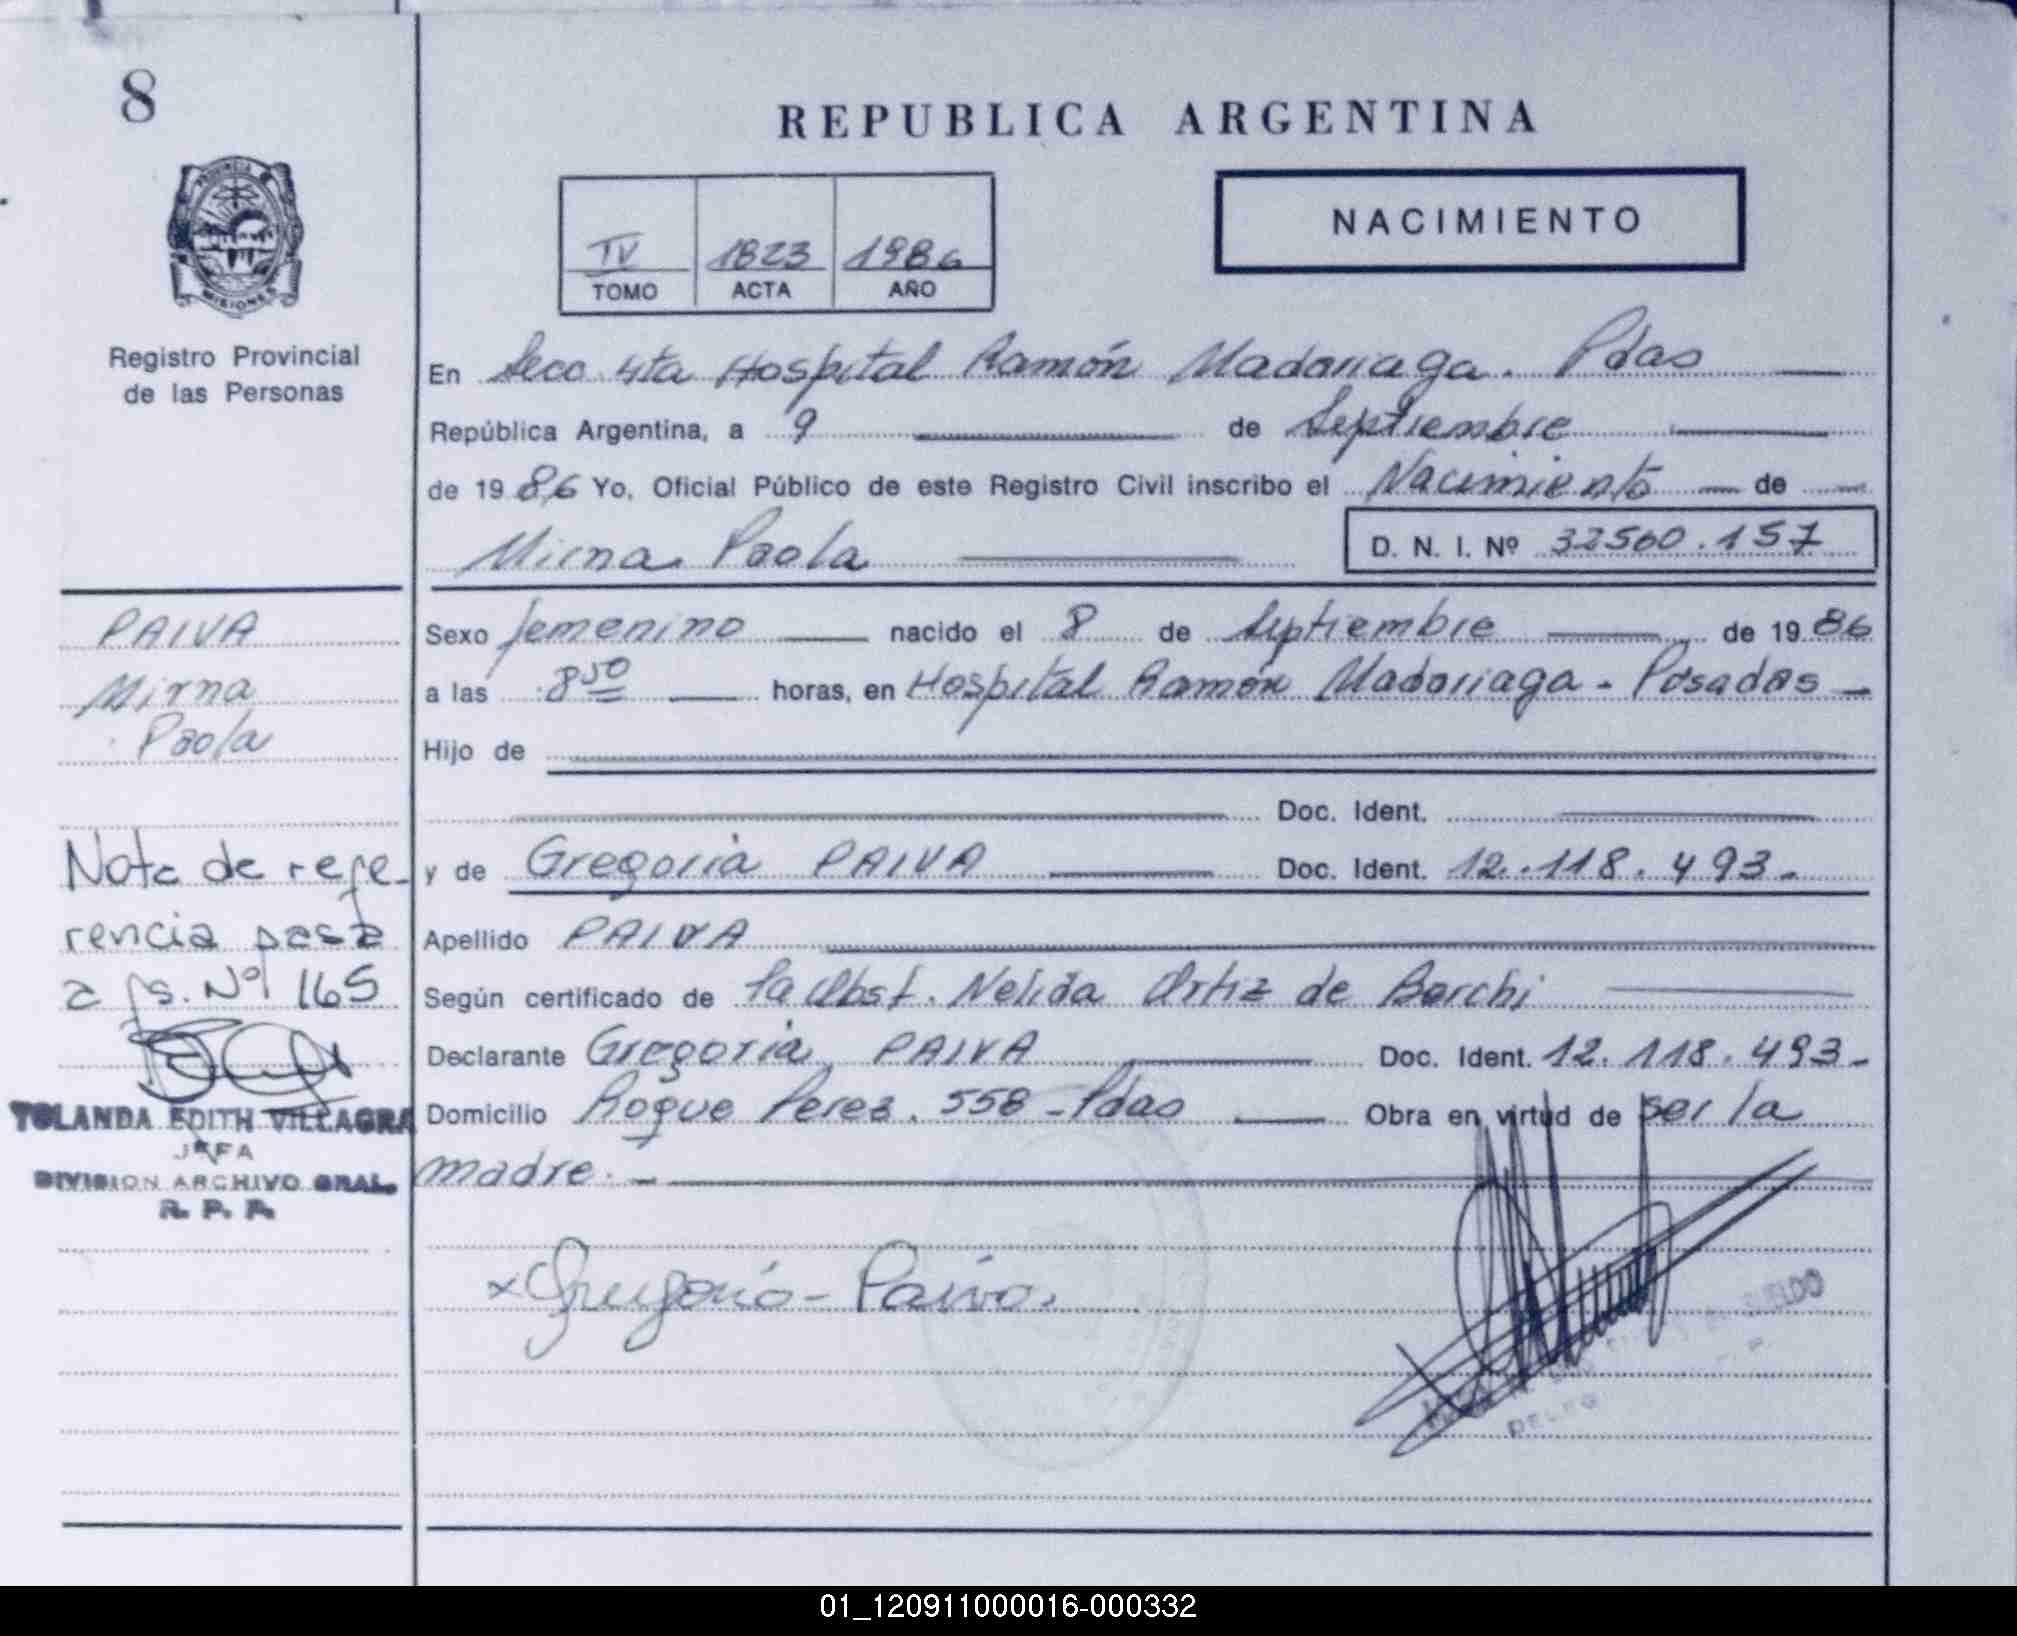 8
REPUBLICA ARGENTINA
PROVINCIA DE
MISIONES
Registro Provincial
de las Personas
IV 1823 1986
TOMO ACTA AÑO
NACIMIENTO
En Secc. 4ta Hospital Ramón Madariaga. Pdas
República Argentina, a 9 de Septiembre
de 1986 Yo, Oficial Público de este Registro Civil inscribo el Nacimiento de
Mirna Paola D. N. I. Nº 32560.157
PAIVA
Mirna
Paola
Sexo femenino nacido el 8 de Septiembre de 1986
a las 8 50 horas, en Hospital Ramón Madariaga - Posadas -
Hijo de
Doc. Ident.
y de Gregoria PAIVA Doc. Ident. 12.118.493.-
Apellido PAIVA
Según certificado de la Obst. Nelida Ortiz de Borchi
Declarante Gregoria PAIVA Doc. Ident. 12.118.493-
Domicilio Roque Perez. 558 - Pdas Obra en virtud de ser la
madre. -
Nota de refe-
rencia pasa
a fs. Nº 165
YOLANDA EDITH VILLAGRA
JEFA
DIVISION ARCHIVO GRAL.
R. P. P.
x Gregoria - Paiva.
DELEG
01_120911000016-000332